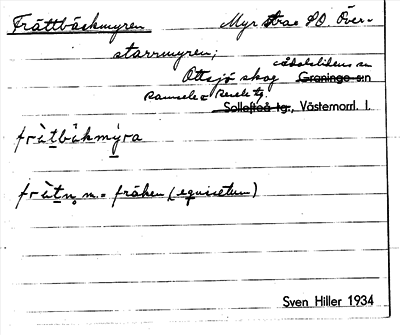 Frättbäckmyren Myr strax SO Över-
starrmyren;
Ottsjö skog Graninge s:n
Ramsele o Resele tg. Sollefteå tg., Västernorrl. l.
fràtbåkmýra
fràtn m. = fräken (equisetum)
Sven Hiller 1934